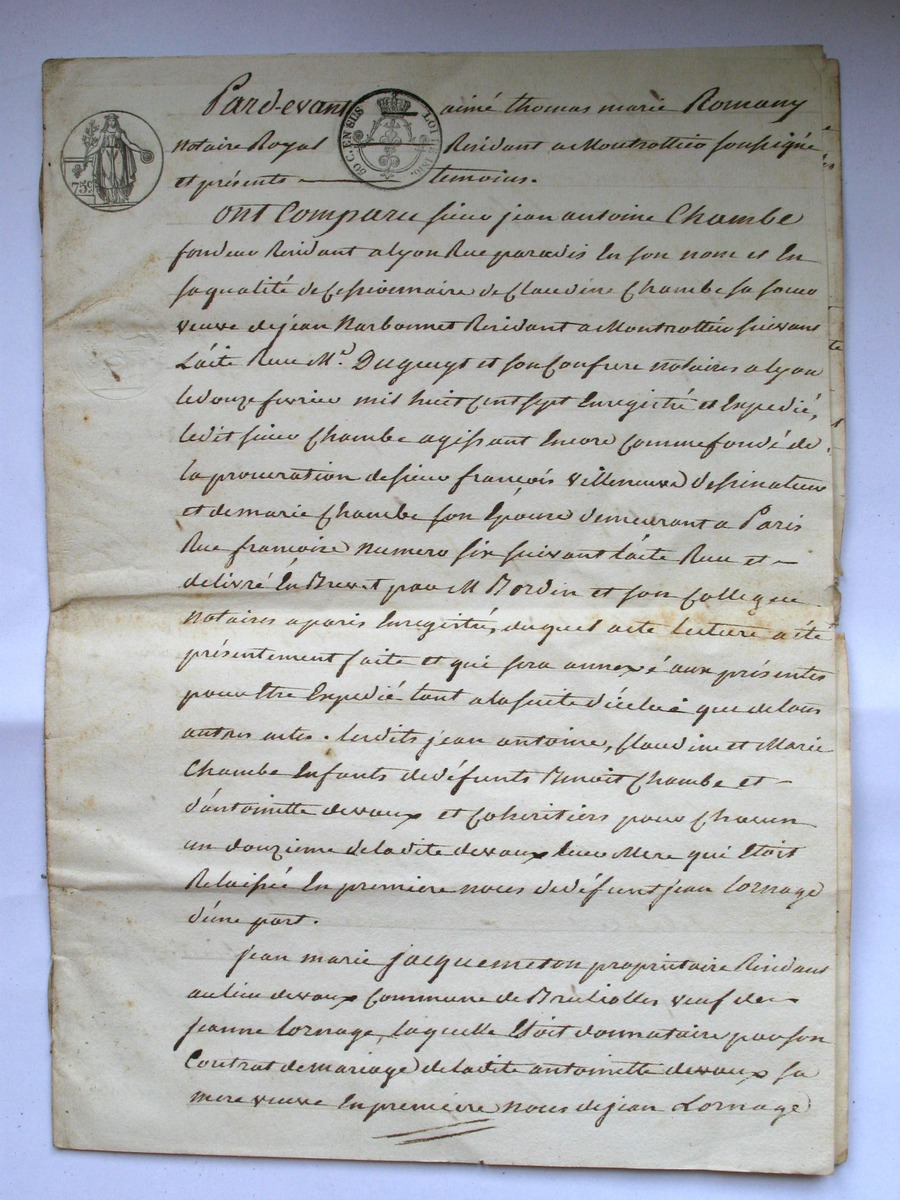 Pardevant aimé thomas marie Romany
notaire Royal Residant a Montrottier soussigné
et présents témoins.
75c
50 C. EN SUS
LOI DE 1816.
ont comparu sieur jean antoine Chambe
fondeur Residant a lyon Rue paradis En son nom et En
sa qualité de Cessionnaire de Claudine Chambe sa soeur
veuve de jean Narbonnet Residant a Montrottier suivant
l'acte Recu Mr. Dugueyt et son Confrere notaires a lyon
le douze fevrier mil huit Cent sept Enregistré et Expedié,
ledit sieur Chambe agissant Encore Comme fondé de
la procuration de sieur françois Villeneuve dessinateur
et de marie Chambe son Epouse demeurant a Paris
Rue françoise numero six suivant l'acte Recu et
delivré En Brevet par M Bordin et son Collegue
notaires a paris Enregistré, duquel acte lecture a été
présentement faite et qui sera annexé aux présentes
pour Etre Expedié tant a la suite d'icelui que de tous
autres actes. lesdits jean antoine, Claudine et Marie
Chambe Enfants de défunts Benoit Chambe et
d'antoinette devaux et Coheritiers pour Chacun
un douzieme de ladite devaux leur Mere qui Etoit
Relaissée En premiere noces de défunt jean lornage
d'une part.
jean marie jacquemeton proprietaire Residant
au lieu devaux Commune de Brulliolles veuf de
jeanne lornage, laquelle Etoit donnataire par son
Contrat de mariage de ladite antoinette devaux sa
mere veuve En premiere noces de jean Lornage